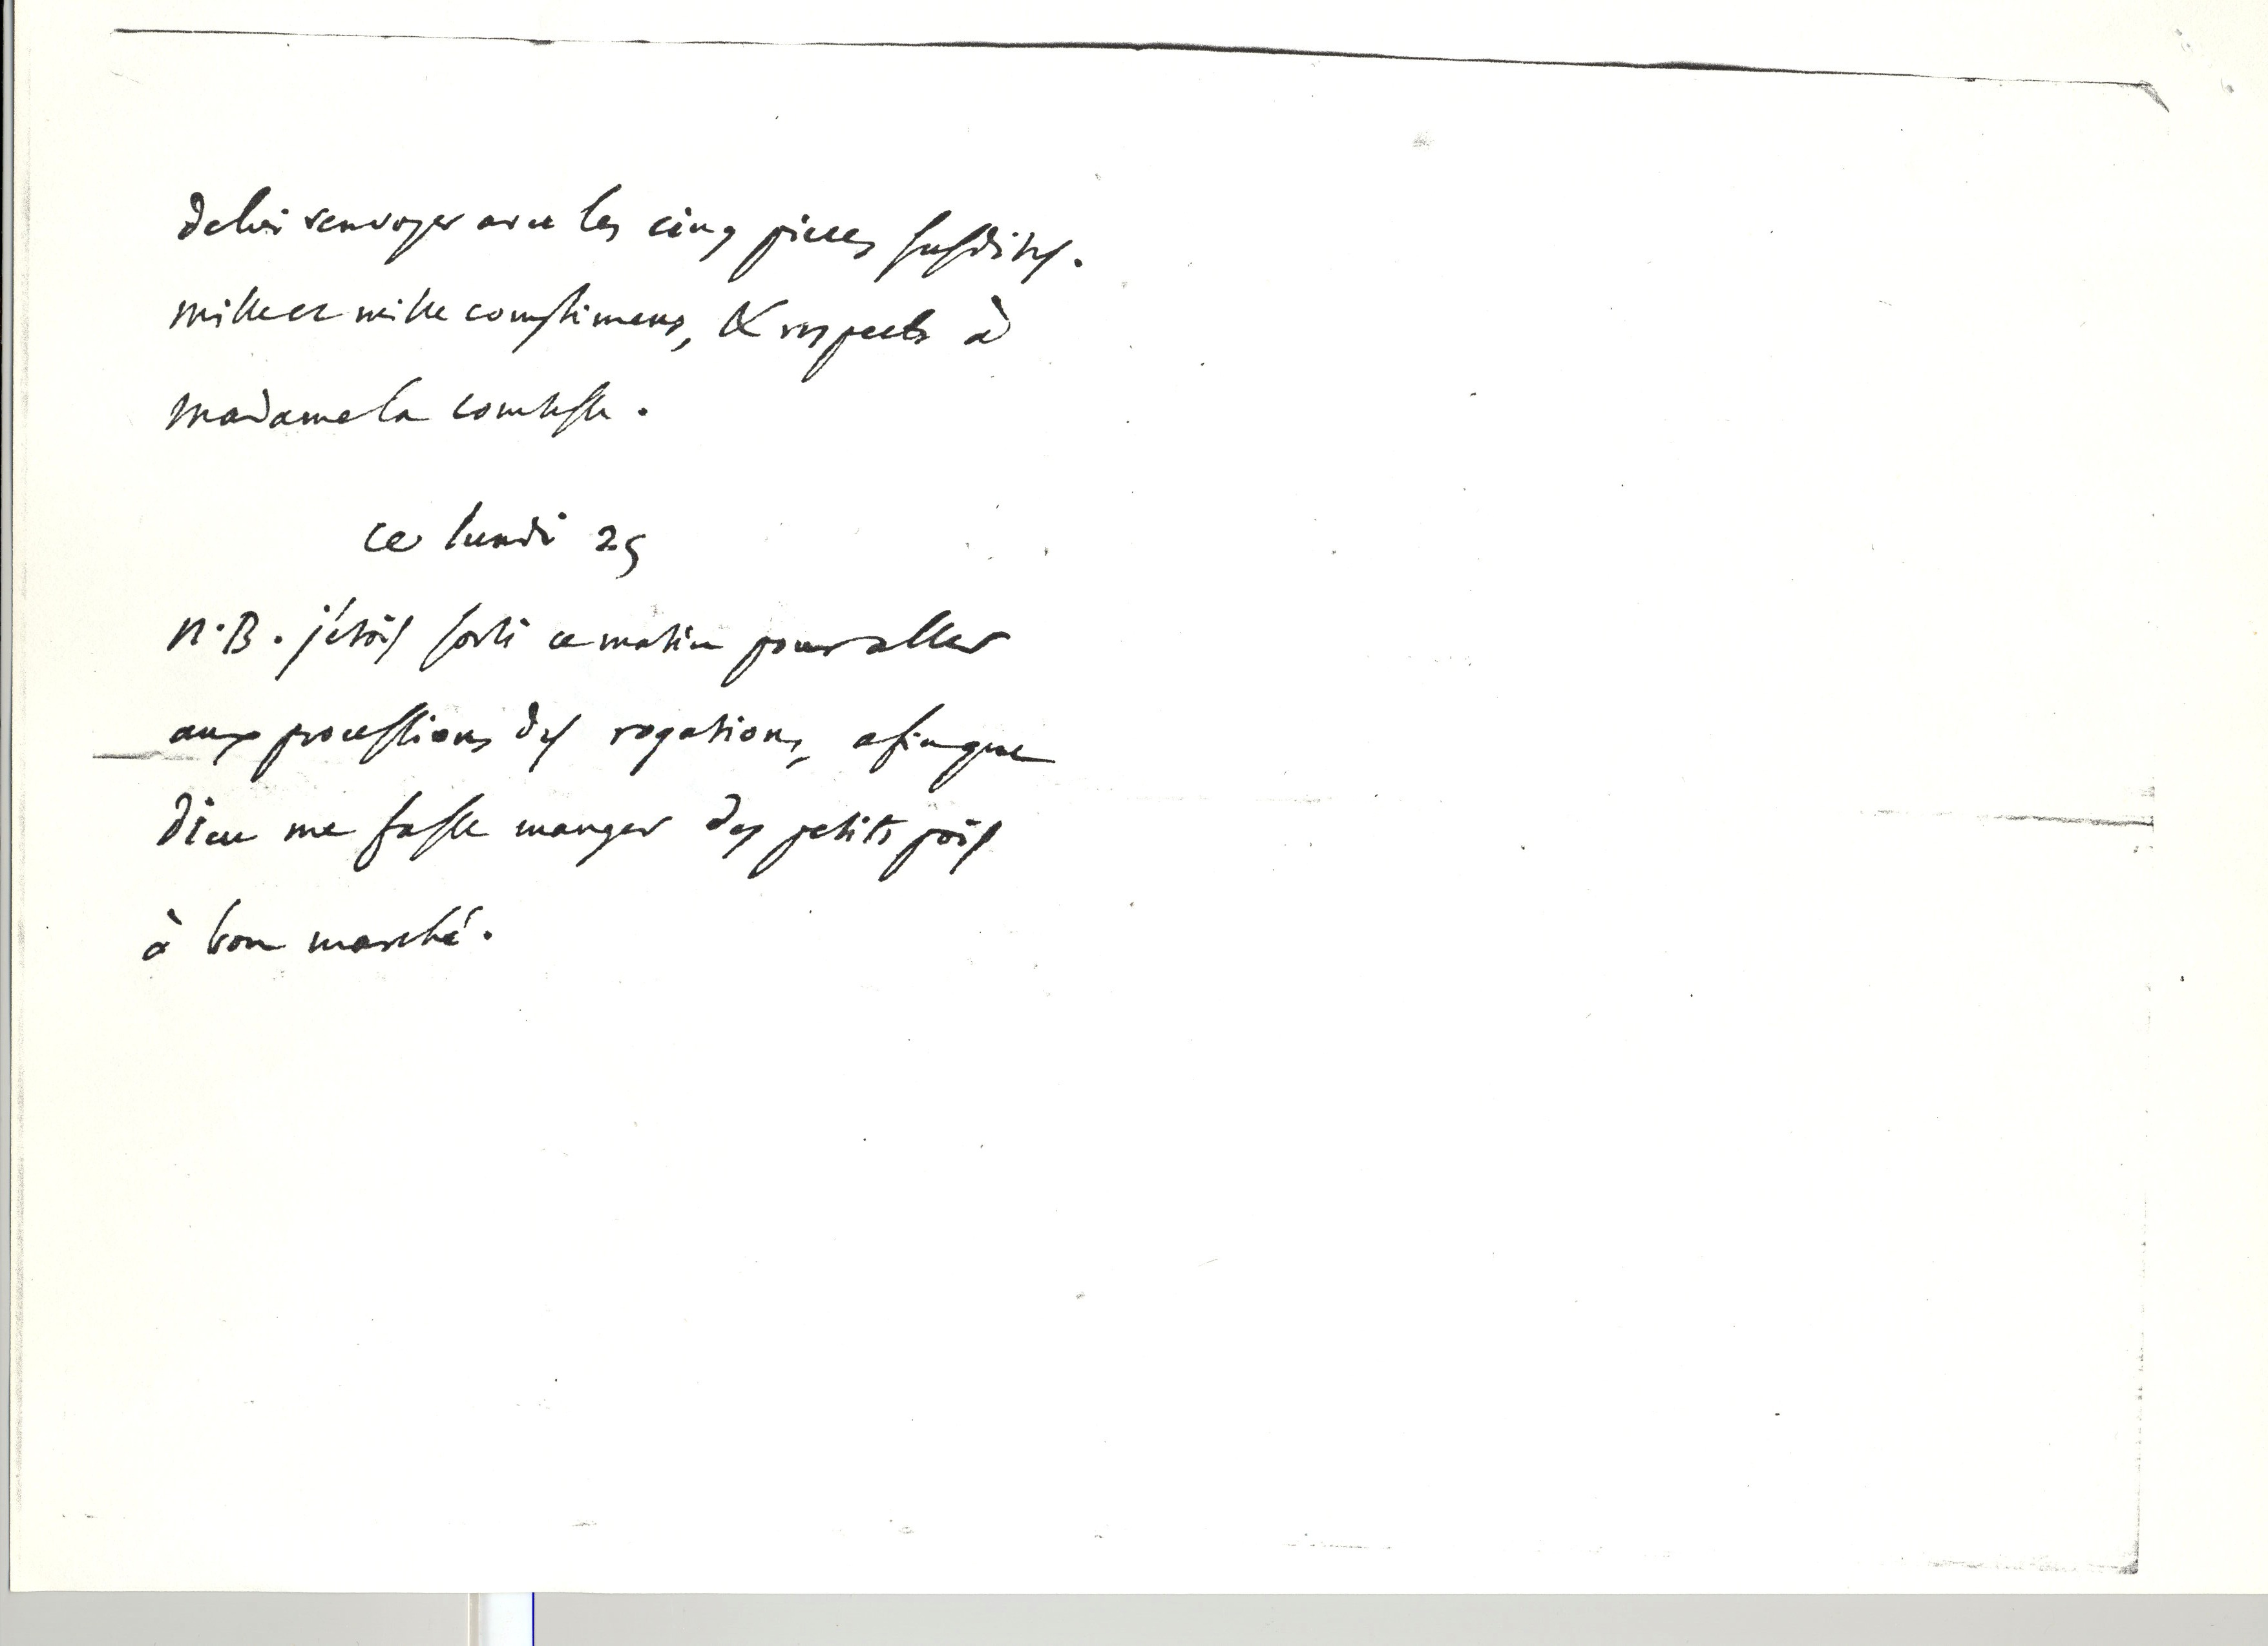 de lui renvoyer avec les cinq pieces susdites.
mille et mille complimens, & respects à
madame la comtesse.
ce lundi 25
N.B. j'étois sorti ce matin pour aller
aux processions des rogations, afin que
dieu me fasse manger des petits pois
à bon marché.